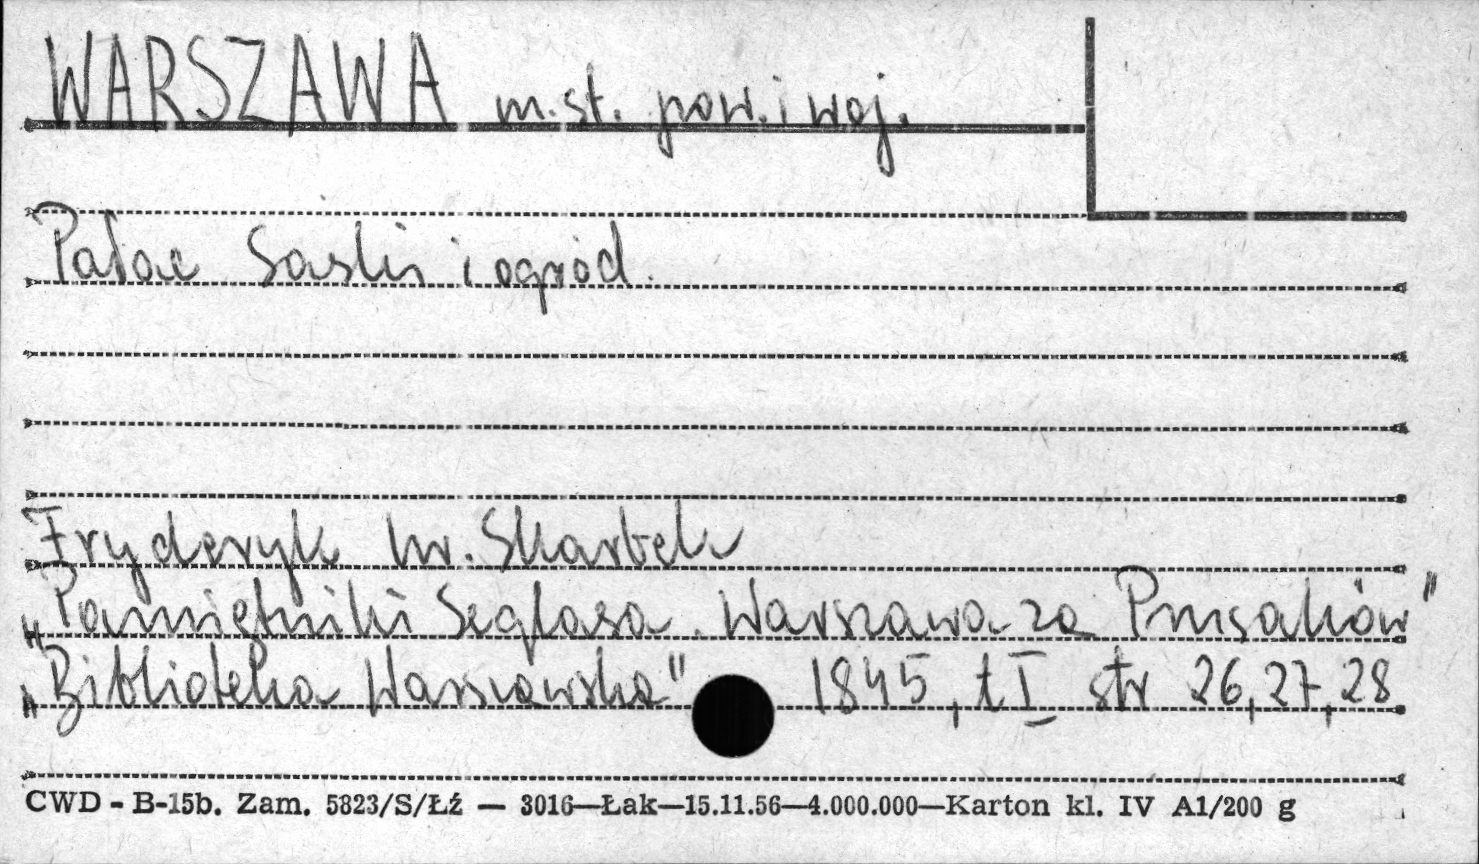 WARSZAWA m.st. pow. i woj.
Pałac Saski i ogród.
Fryderyk hr. Skarbek
„Pamiętniki Seglasa. Warszawa za Prusaków"
„Biblioteka Warszawska" 1845, t I str 26, 27, 28
CWD - B-15b. Zam. 5823/S/Łź — 3016—Łak—15.11.56—4.000.000—Karton kl. IV A1/200 g